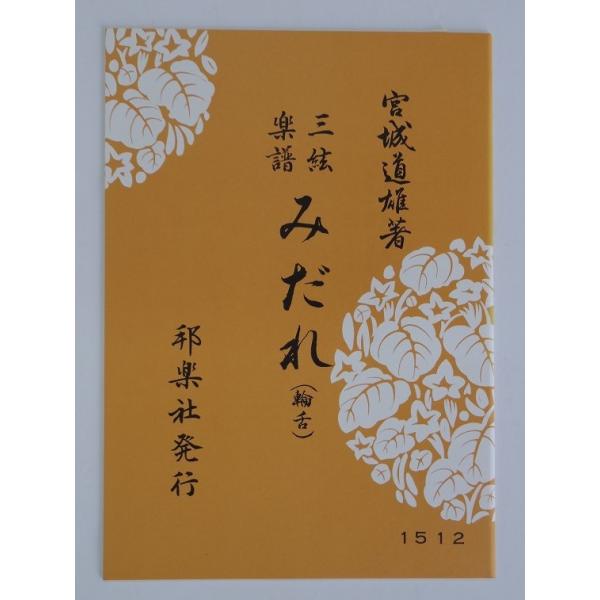 宮城道雄著
三絃
楽譜
みだれ
(輪舌)
邦楽社発行
1512